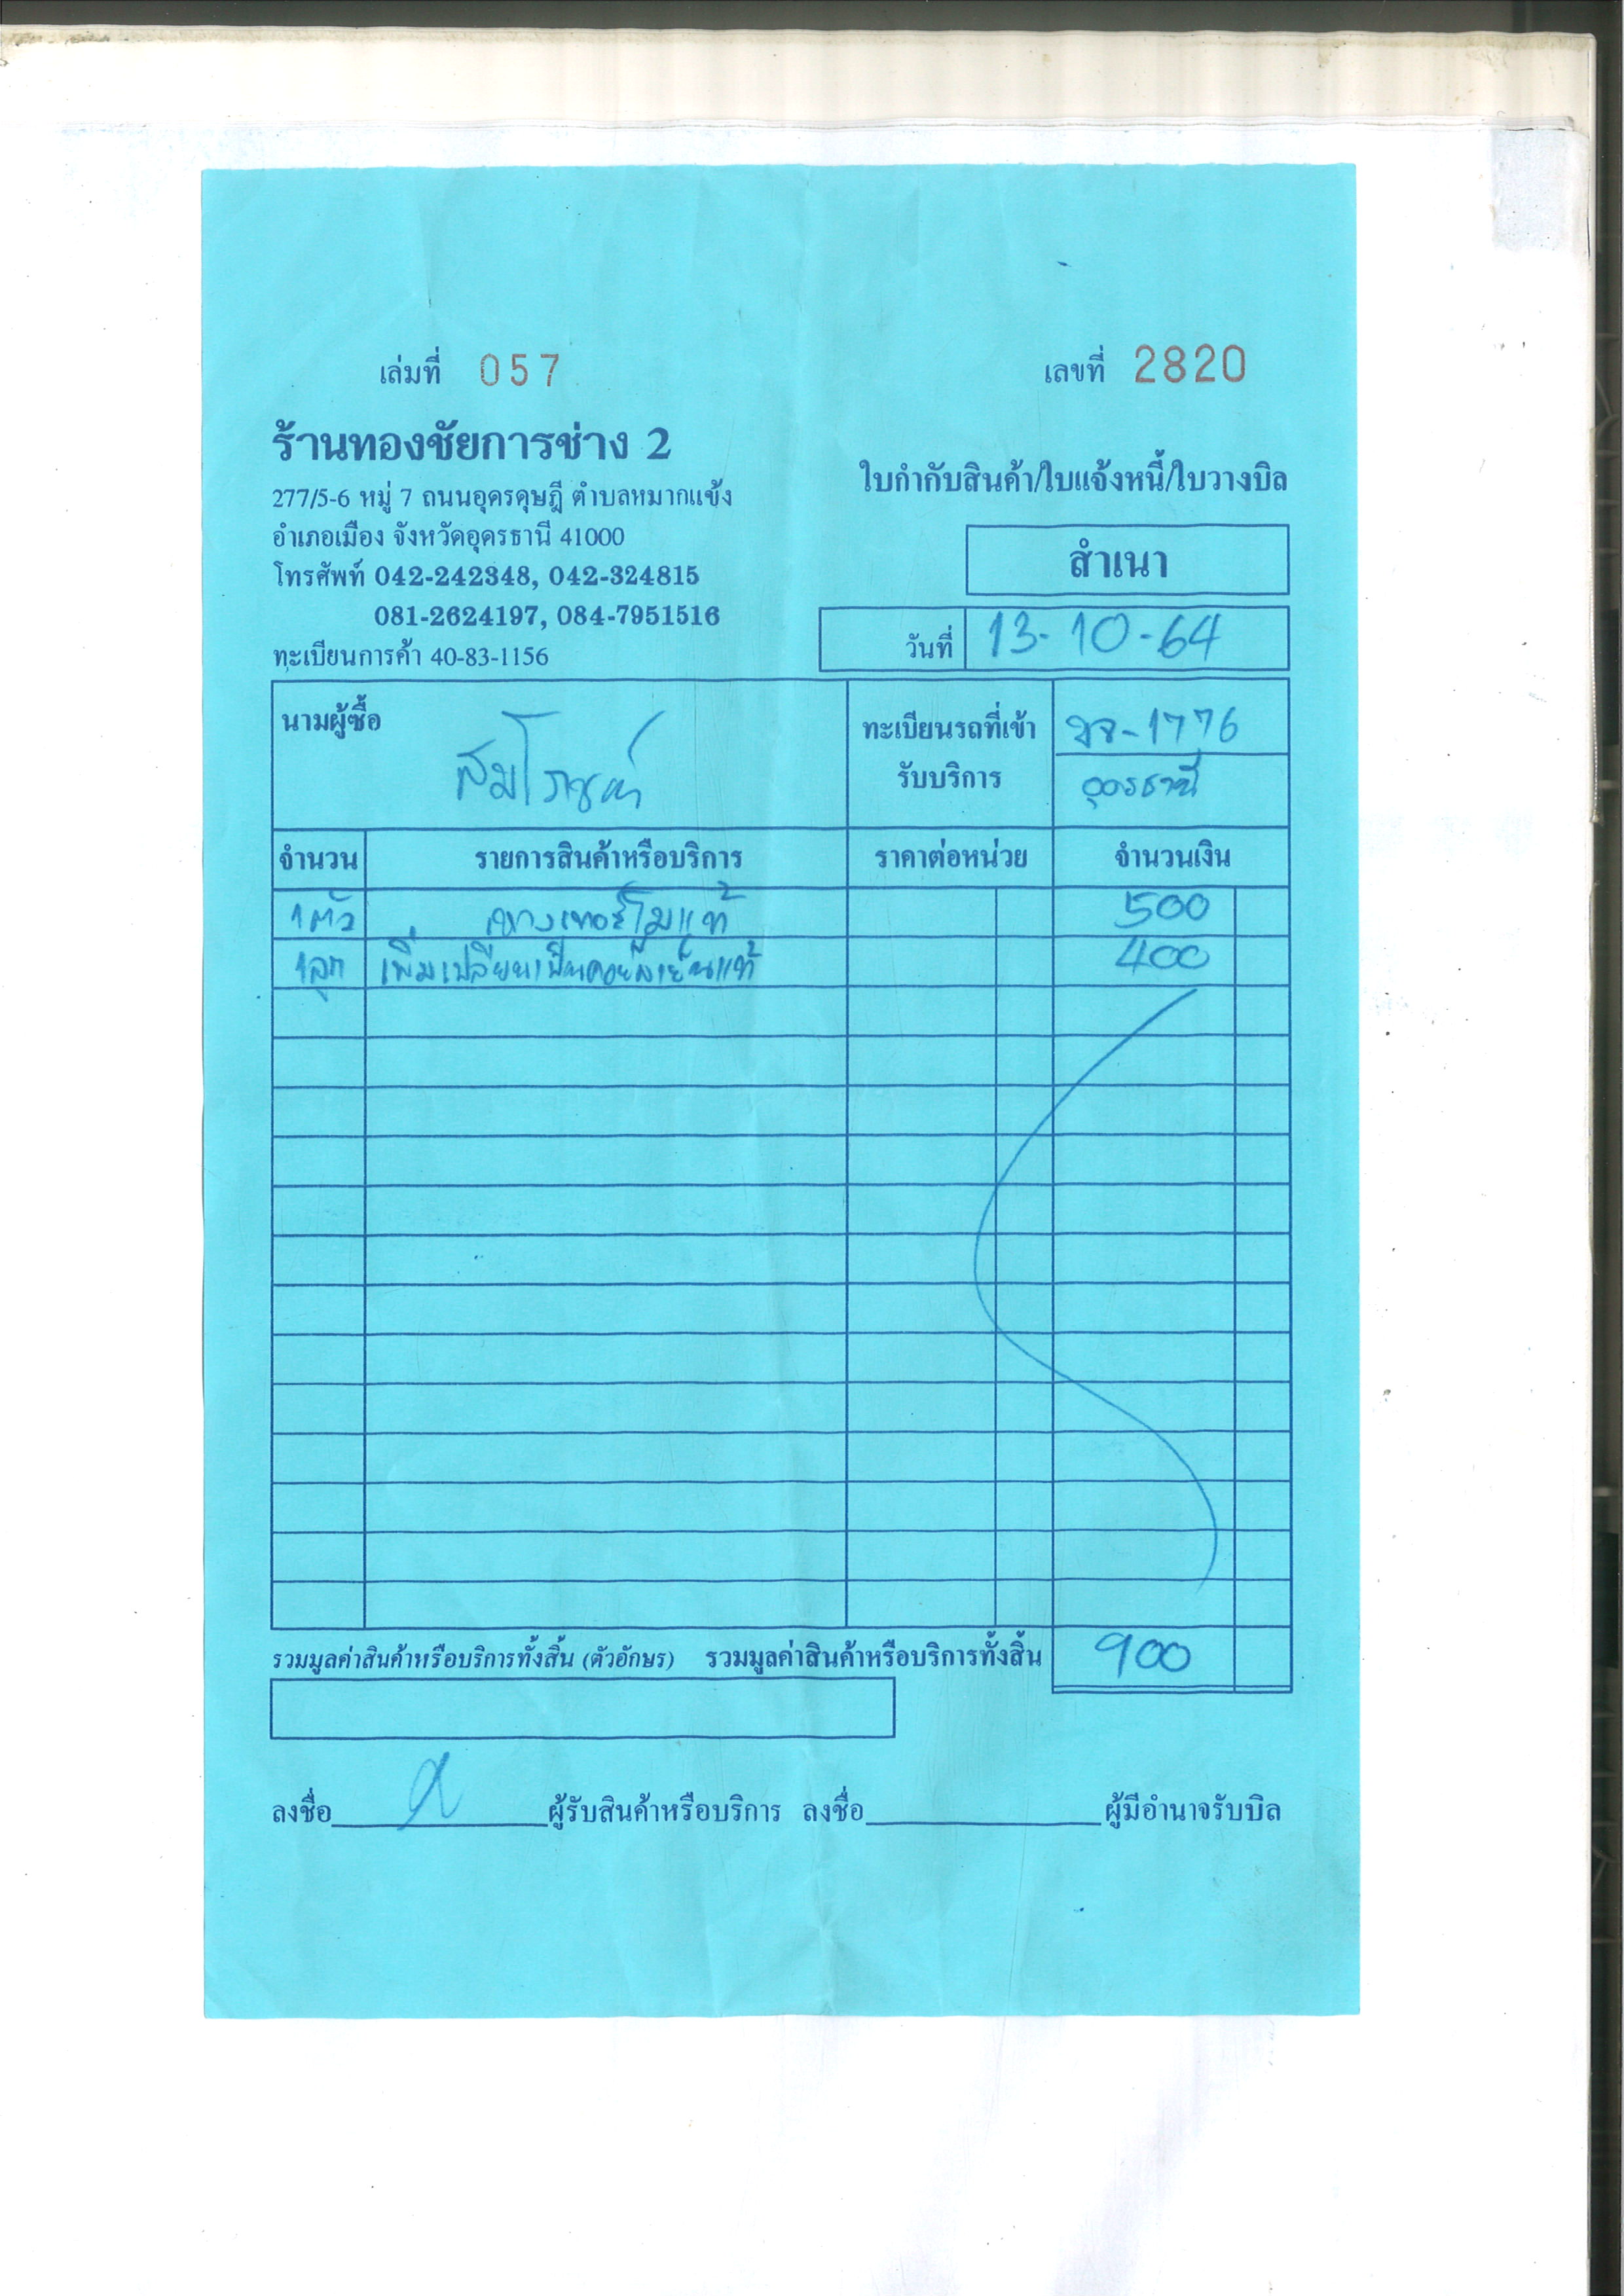 เล่มที่ 057 เลขที่ 2820
ร้านทองชัยการช่าง 2
277/5-6 หมู่ 7 ถนนอุดรดุษฎี ตำบลหมากแข้ง
อำเภอเมือง จังหวัดอุดรธานี 41000
โทรศัพท์ 042-242348, 042-324815
081-2624197, 084-7951516
ทะเบียนการค้า 40-83-1156
ใบกำกับสินค้า/ใบแจ้งหนี้/ใบวางบิล
สำเนา
วันที่ 13-10-64
นามผู้ซื้อ สมโภชน์
ทะเบียนรถที่เข้ารับบริการ -1776
อุดรธานี
จำนวน รายการสินค้าหรือบริการ ราคาต่อหน่วย จำนวนเงิน
1ตัว หางเทอร์โมแท้ 500
1ลูก เพิ่มเปลี่ยนเป็นคอยล์เย็นแท้ 400
รวมมูลค่าสินค้าหรือบริการทั้งสิ้น (ตัวอักษร) รวมมูลค่าสินค้าหรือบริการทั้งสิ้น 900
ลงชื่อ ผู้รับสินค้าหรือบริการ ลงชื่อ ผู้มีอำนาจรับบิล